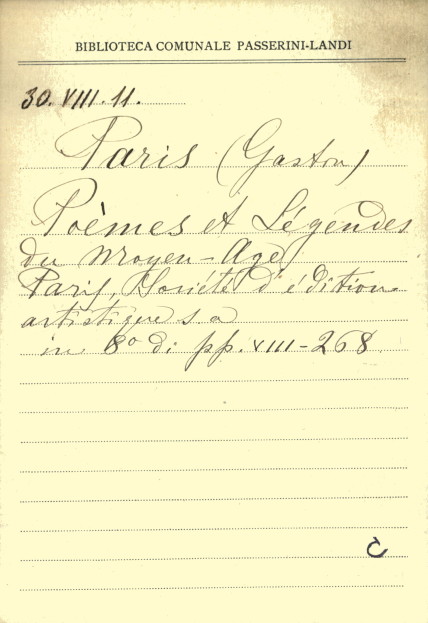 BIBLIOTECA COMUNALE PASSERINI-LANDI
30. VIII. 11.
Paris (Gaston)
Poèmes et Légendes
du Moyen-Age
Paris, Société d'édition
artistique s a
in 8º di pp. VIII-268
C